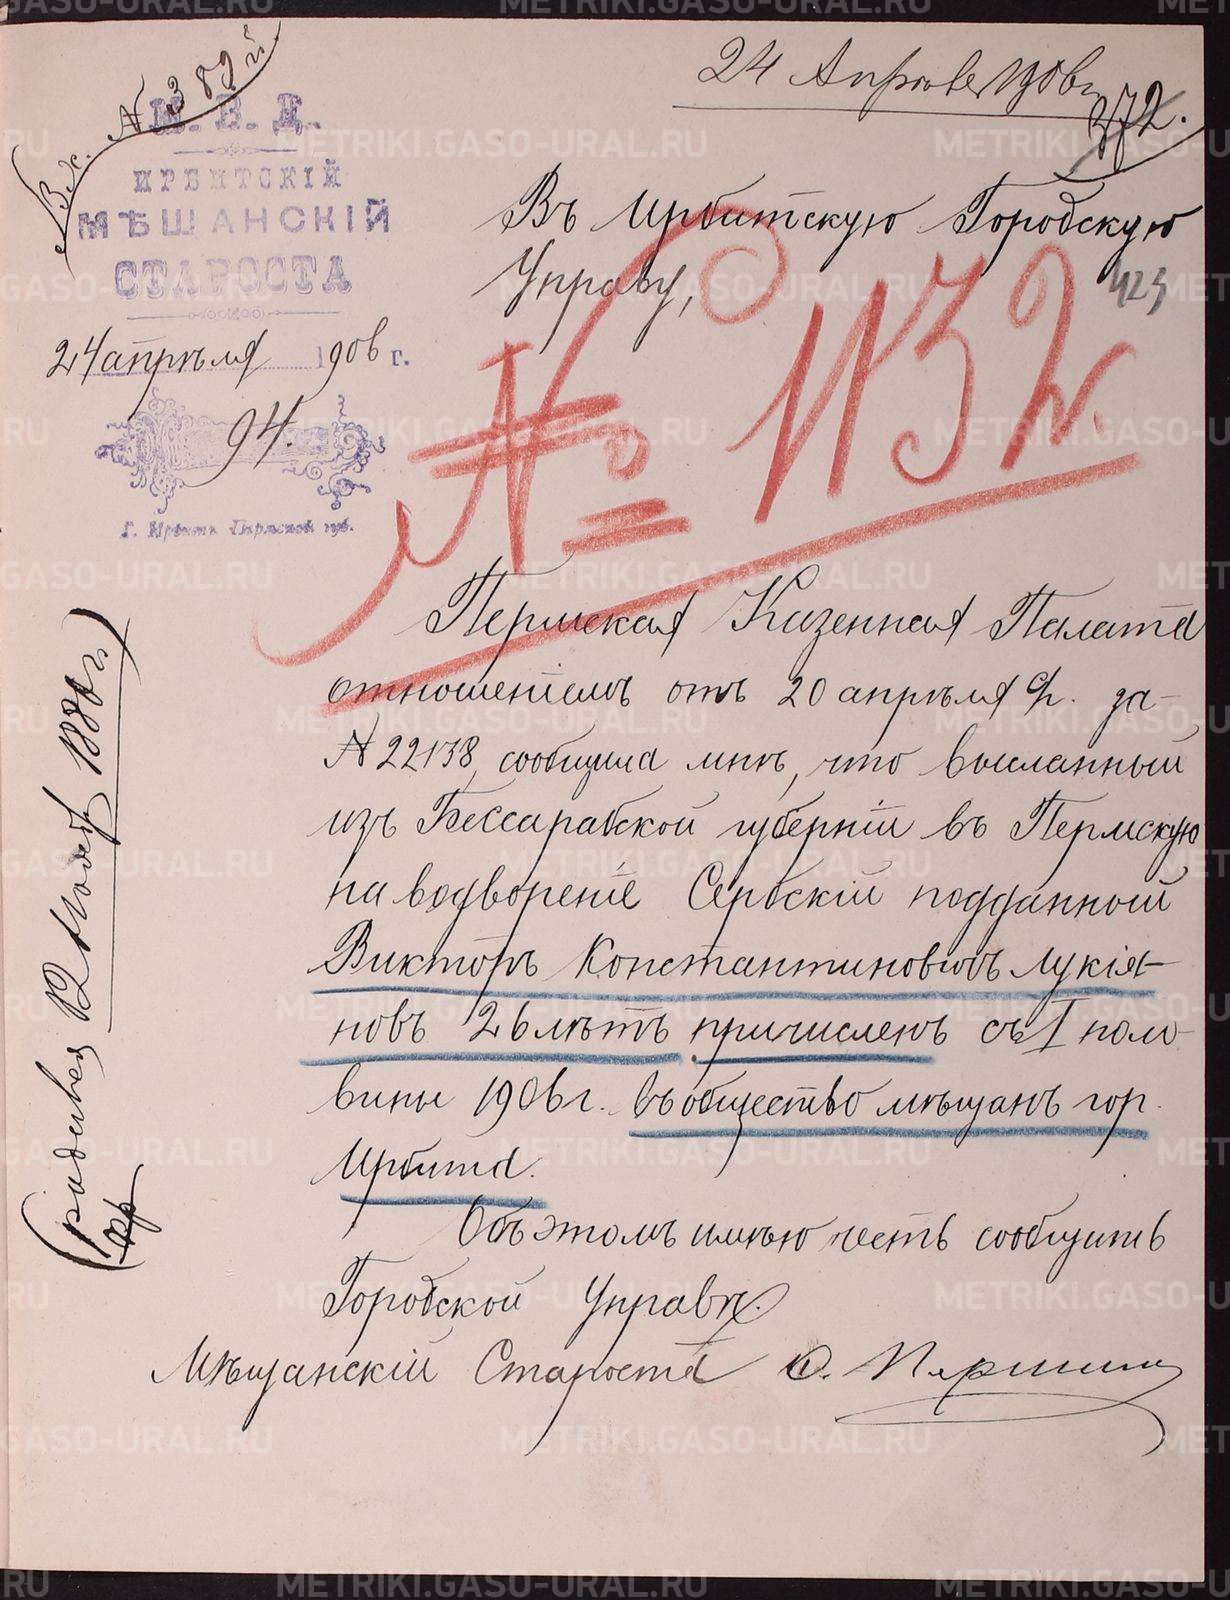 Вх. № 389
М. В. Д.
ИРБИТСКІЙ
МѢЩАНСКІЙ
СТАРОСТА
24 апрѣля 1906 г.
94.
Г. Ирбитъ Пермской губ.
24 Апрѣля 1906 г.
372.
Въ Ирбитскую Городскую
Управу,
№ 1132.
Пермская Казенная Палата
отношеніемъ отъ 20 апрѣля с/г. за
№ 22138, сообщила мнѣ, что высланный
изъ Бессарабской губерніи въ Пермскую
на водвореніе Сербскій подданный
Викторъ Константиновичъ Лукія-
новъ 26 лѣтъ причисленъ съ I поло-
вины 1906 г. въ общество мѣщанъ гор.
Ирбита.
Объ этомъ имѣю честь сообщить
Городской Управѣ.
Мѣщанскій Староста
(родился 12 Ноябр 1880 г.)
METRIKI.GASO-URAL.RU